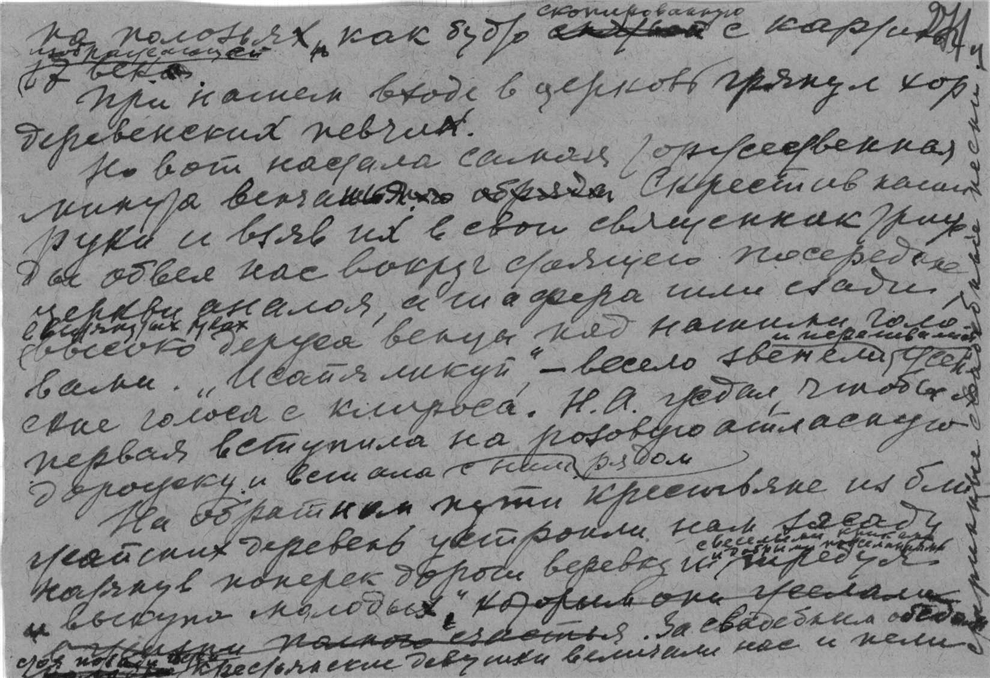 на полозьях, как будто скопированную с картины
17 века.
При нашем входе в церковь грянул хор
деревенских певчих.
Но вот настала самая торжественная
минута венчанья. Скрестив наши
руки и взяв их в свои священник триж
ды обвел нас вокруг стоящего посередине
церкви аналоя, а шафера шли сзади,
высоко держа венцы над нашими голо
вами. „Исайя ликуй", – весело звенели
ские голоса с клироса. Н.А. ждал, чтобы я
первая вступила на розовую атласную
дорожку и встала с ним рядом
На обратном пути крестьяне из бли
жайших деревень устроили нам засаду
натянув поперек дороги веревку и
с веселыми криками
и добрыми пожеланиями
требуя
„выкупа молодых", которым они желали
полного счастья. За свадебным обедом
крестьянские девушки величали нас и пели
старинные
песни